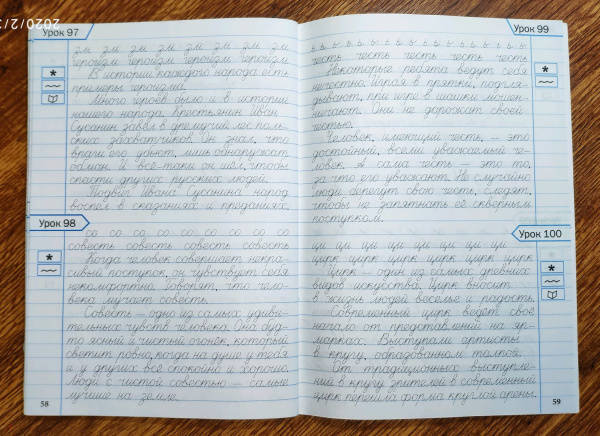 2020/2/2
Урок 97
зм зм зм зм зм зм зм зм
героизм героизм героизм героизм
В истории каждого народа есть
примеры героизма.
Много героев было и в истории
нашего народа. Крестьянин Иван
Сусанин завёл в дремучий лес поль-
ских захватчиков. Он знал, что
враги его убьют, лишь обнаружат
обман. И всё-таки он шёл, чтобы
спасти других русских людей.
Подвиг Ивана Сусанина народ
воспел в сказаниях и преданиях.
Урок 98
со со со со со со со со со
совесть совесть совесть совесть
Когда человек совершает некра-
сивый поступок, он чувствует себя
некомфортно. Говорят, что чело-
века мучает совесть.
Совесть – одно из самых удиви-
тельных чувств человека. Она буд-
то ясный и чистый огонёк, который
светит ровно, когда на душе у тебя
и у других всё спокойно и хорошо.
Люди с чистой совестью – самые
лучшие на земле.
58
Урок 99
честь честь честь честь честь
Некоторые ребята ведут себя
нечестно: играя в прятки, подгля-
дывают, при игре в шашки мошен-
ничают. Они не дорожат своей
честью.
Человек, имеющий честь, – это
достойный, всеми уважаемый че-
ловек. А сама честь – это то,
за что его уважают. Не случайно
люди берегут свою честь, следят,
чтобы не запятнать её скверным
поступком.
Урок 100
ци ци ци ци ци ци ци ци
цирк цирк цирк цирк цирк цирк
Цирк – один из самых древних
видов искусства. Цирк вносит
в жизнь людей веселье и радость.
Современный цирк ведёт своё
начало от представлений на яр-
марках. Выступали артисты
в кругу, образованном толпой.
От традиционных выступле-
ний в кругу зрителей в современный
цирк перешла форма круглой арены.
59